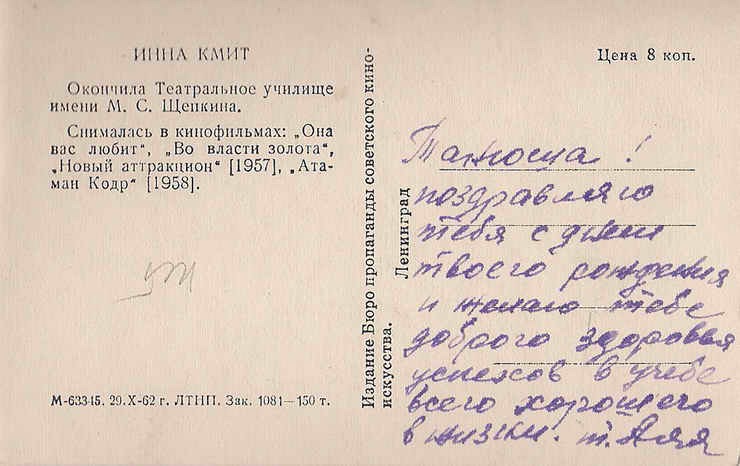 ИННА КМИТ
Окончила Театральное училище
имени М. С. Щепкина.
Снималась в кинофильмах: „Она
вас любит“, „Во власти золота“,
„Новый аттракцион“ [1957], „Ата-
ман Кодр“ [1958].
М-63345. 29.X-62 г. ЛТНП. Зак. 1081—150 т.
Издание Бюро пропаганды советского кино-
искусства.
Ленинград
Цена 8 коп.
Танюша!
поздравляю
тебя с днем
твоего рождения
и желаю тебе
доброго здоровья
успехов в учебе
всего хорошего
в жизни. т.